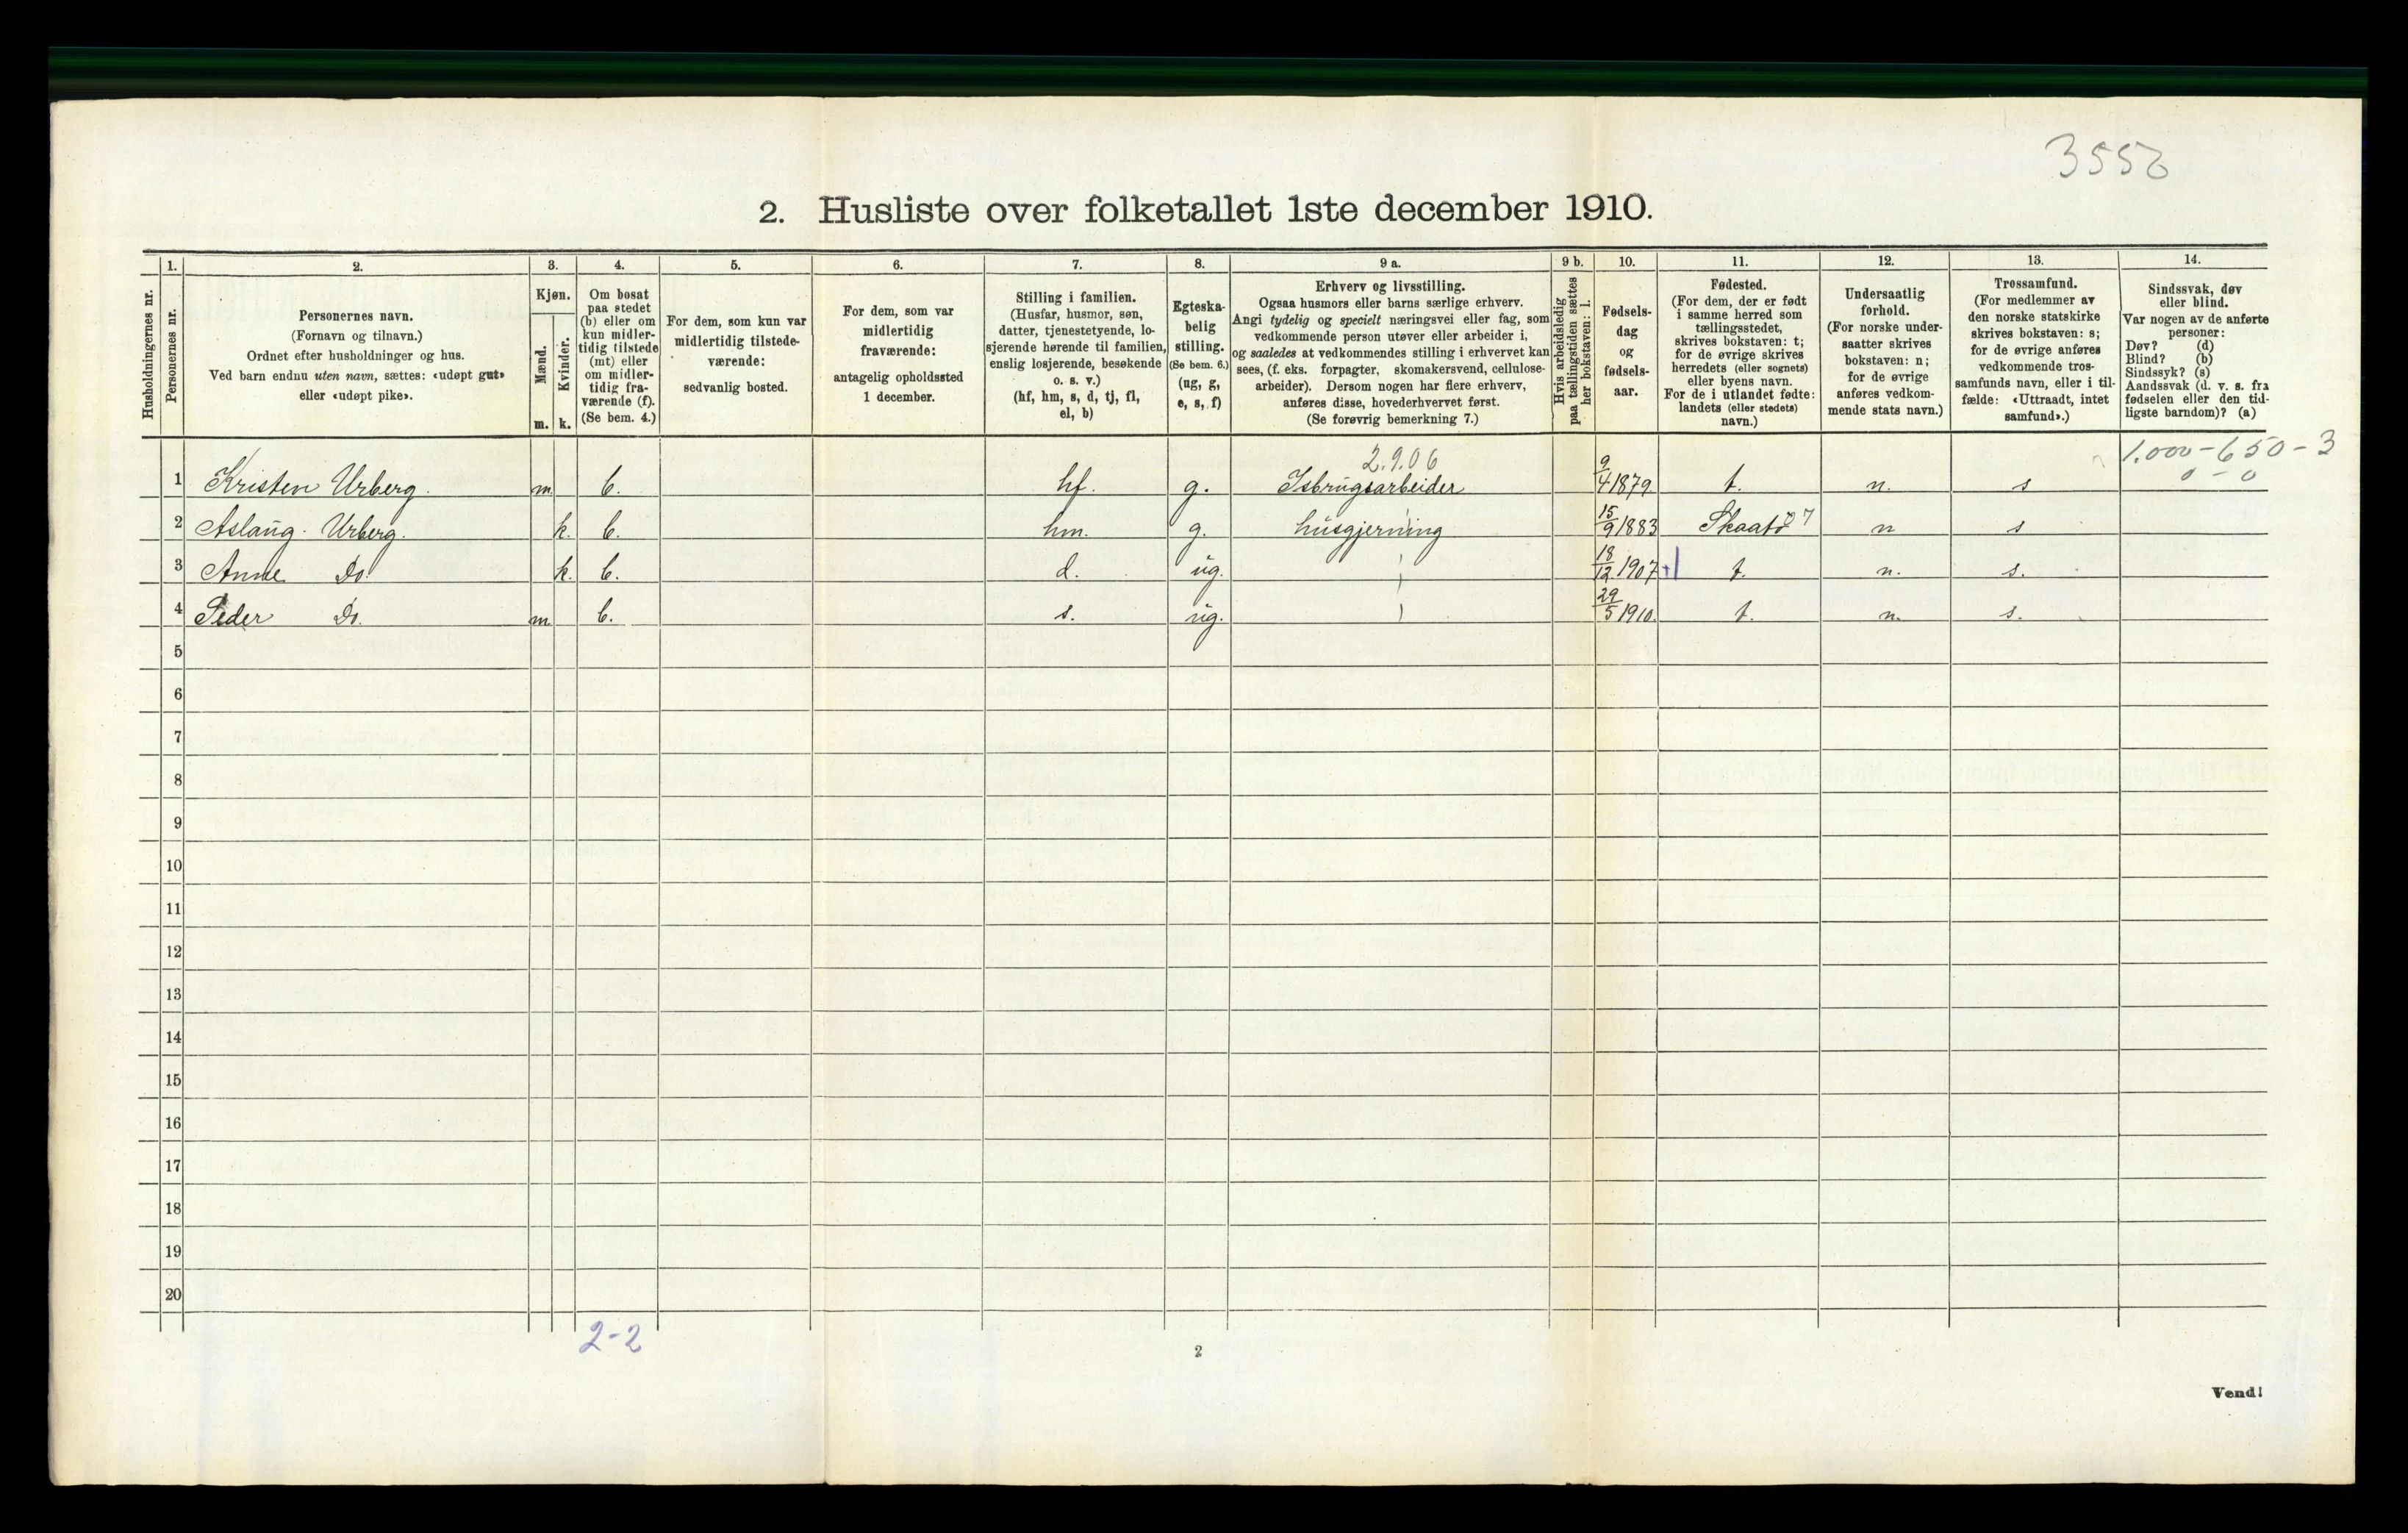 3558
2. Husliste over folketallet 1ste december 1910.
Husholdningernes nr.
1.
Personernes nr.
2.
Personernes navn.
(Fornavn og tilnavn.)
Ordnet efter husholdninger og hus.
Ved barn endnu uten navn, sættes: «udøpt gut»
eller «udøpt pike».
3.
Kjøn.
Mænd.
Kvinder.
m. k.
4.
Om bosat
paa stedet
(b) eller om
kun midler-
tidig tilstede
(mt) eller
om midler-
tidig fra-
værende (f).
(Se bem. 4.)
5.
For dem, som kun var
midlertidig tilstede-
værende:
sedvanlig bosted.
6.
For dem, som var
midlertidig
fraværende:
antagelig opholdssted
1 december.
7.
Stilling i familien.
(Husfar, husmor, søn,
datter, tjenestetyende, lo-
sjerende hørende til familien,
enslig losjerende, besøkende
o. s. v.)
(hf, hm, s, d, tj, fl,
el, b)
8.
Egteska-
belig
stilling.
(Se bem. 6.)
(ug, g,
e, s, f)
9 a.
Erhverv og livsstilling.
Ogsaa husmors eller barns særlige erhverv.
Angi tydelig og specielt næringsvei eller fag, som
vedkommende person utøver eller arbeider i,
og saaledes at vedkommendes stilling i erhvervet kan
sees, (f. eks. forpagter, skomakersvend, cellulose-
arbeider). Dersom nogen har flere erhverv,
anføres disse, hovederhvervet først.
(Se forøvrig bemerkning 7.)
9 b.
Hvis arbeidsledig
paa tællingstiden sættes
her bokstaven: l.
10.
Fødsels-
dag
og
fødsels-
aar.
11.
Fødested.
(For dem, der er født
i samme herred som
tællingsstedet,
skrives bokstaven: t;
for de øvrige skrives
herredets (eller sognets)
eller byens navn.
For de i utlandet fødte:
landets (eller stedets)
navn.)
12.
Undersaatlig
forhold.
(For norske under-
saatter skrives
bokstaven: n;
for de øvrige
anføres vedkom-
mende stats navn.)
13.
Trossamfund.
(For medlemmer av
den norske statskirke
skrives bokstaven: s;
for de øvrige anføres
vedkommende tros-
samfunds navn, eller i til-
fælde: «Uttraadt, intet
samfund».)
14.
Sindssvak, døv
eller blind.
Var nogen av de anførte
personer:
Døv? (d)
Blind? (b)
Sindssyk? (s)
Aandssvak (d. v. s. fra
fødselen eller den tid-
ligste barndom)? (a)
2.9.06 1.000-650-3
1 Kristen Urberg. m. b. hf. g. Isbrugsarbeider 9/4 1879 t. n. s 0-0
2 Aslaug Urberg. k. b. hm. g. husgjerning 15/9 1883 Skaatø 07 n s
3 Anne Do. k. b. d. ug. 18/12 1907 +1 t. n. s.
4 Peder Do. m. b. s. ug. 29/5 1910. t. n. s.
5
6
7
8
9
10
11
12
13
14
15
16
17
18
19
20
2-2
2
Vend!